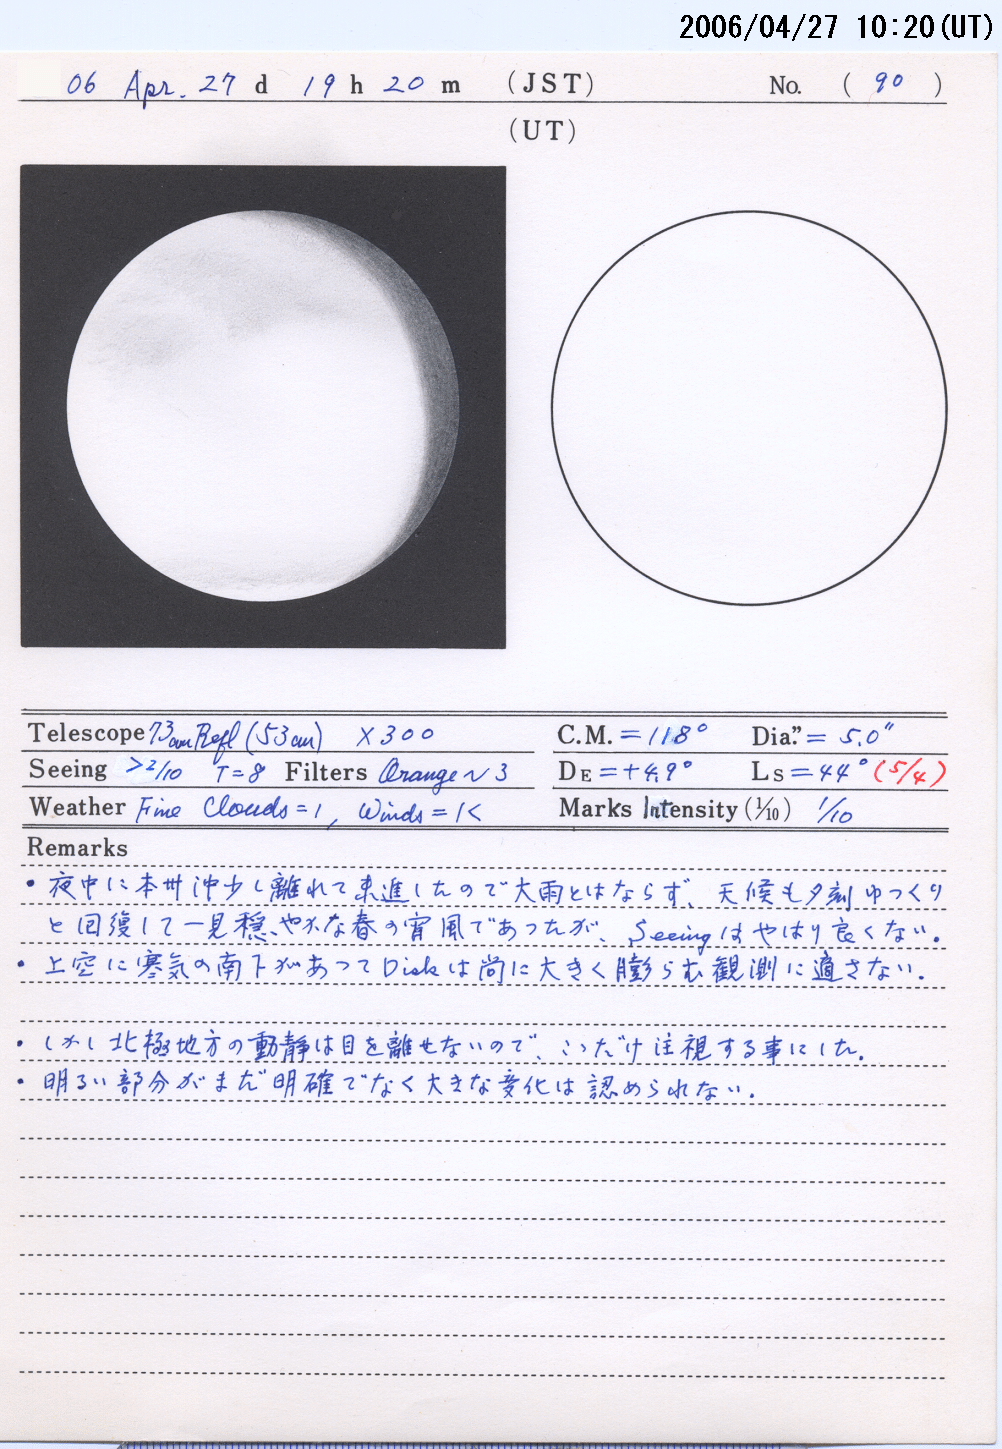 2006/04/27 10:20(UT)
06 Apr. 27 d 19 h 20 m (JST) No. ( 90 )
(UT)
Telescope 73cm Refl (53cm) ×300 C.M. = 118° Dia." = 5.0"
Seeing >2/10 T=8 Filters Orange~3 DE = +4.9° LS = 44° (5/4)
Weather Fine Clouds=1, Winds=1< Marks Intensity (1/10) 1/10
Remarks
・夜中に本州沖少し離れて東進したので大雨とはならず、天候も夕刻ゆっくり
と回復して一見穏やかな春の宵風であったが、Seeingはやはり良くない。
・上空に寒気の南下があってDiskは尚に大きく膨らむ観測に適さない。
・しかし北極地方の動静は目を離せないので、こゝだけ注視する事にした。
・明るい部分がまだ明確でなく大きな変化は認められない。